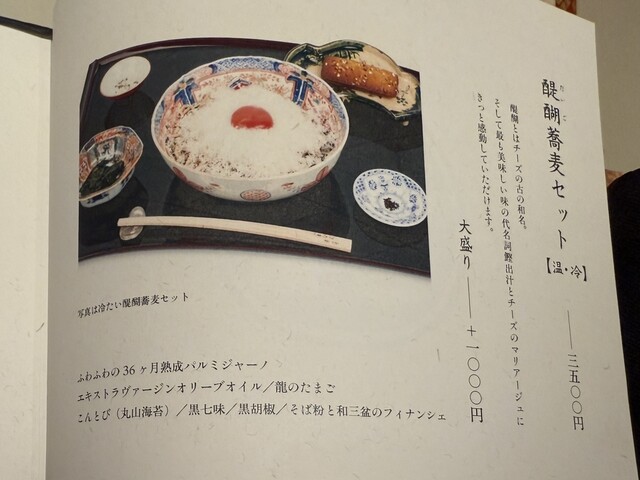 醍醐蕎麦セット【温・冷】 ―― 三五〇〇円
だいご
醍醐とはチーズの古の和名。
そして最も美味しい味の代名詞鰹出汁とチーズのマリアージュに
きっと感動していただけます。
大盛り ―― +一〇〇〇円
写真は冷たい醍醐蕎麦セット
ふわふわの36ヶ月熟成パルミジャーノ
エキストラヴァージンオリーブオイル／龍のたまご
こんとび（丸山海苔）／黒七味／黒胡椒／そば粉と和三盆のフィナンシェ